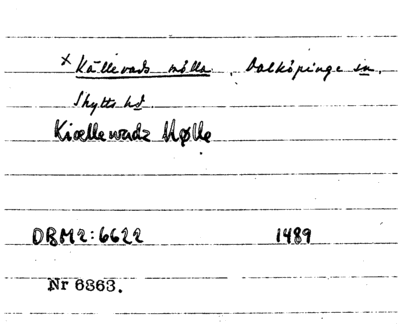 x Källevads mölla, Dalköpinge sn,
Skytts hd
Kiællewadz Mølle
DBM2:6622 1489
Nr 6363.